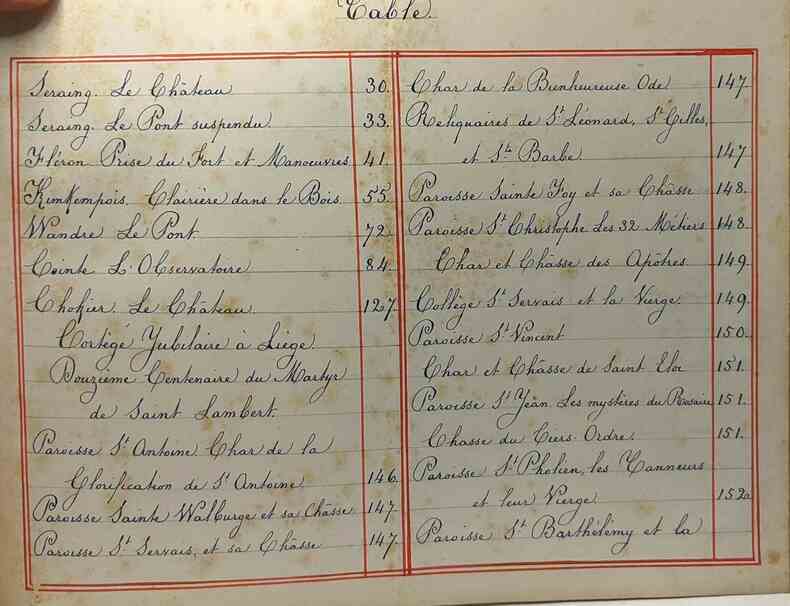 Table.
Seraing. Le Château 30.
Seraing. Le Pont suspendu. 33.
Fléron Prise du Fort et Manoeuvres 41.
Kinkempois. Clairière dans le Bois. 55.
Wandre Le Pont. 72.
Cointe L'Observatoire 84.
Chokier. Le Château. 127.
Cortégé Jubilaire à Liège.
Douzième Centenaire du Martyr
de Saint Lambert.
Paroisse St Antoine Char de la
Glorification de St Antoine 146.
Paroisse Sainte Walburge et sa Châsse 147.
Paroisse St Servais, et sa Châsse 147.
Char de la Bienheureuse Ode 147.
Reliquaires de St Léonard, St Gilles,
et Ste Barbe. 147
Paroisse Sainte Foy et sa Châsse 148.
Paroisse St Christophe Les 32 Métiers 148.
Char et Châsse des Apôtres. 149.
Collège St Servais et la Vierge. 149.
Paroisse St Vincent 150.
Char et Châsse de Saint Eloi 151.
Paroisse St Jean. Les mystères du Rosaire 151.
Chasse du Tiers-Ordre. 151.
Paroisse St Pholien, les Tanneurs
et leur Vierge 152a
Paroisse St Barthélémy et la